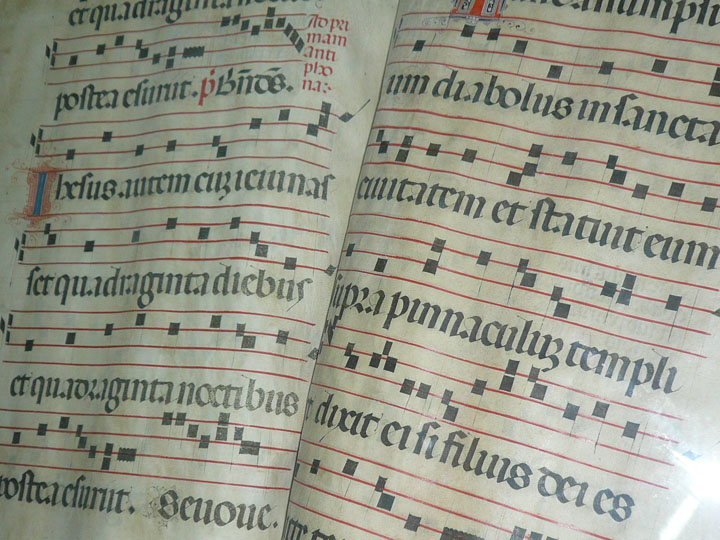 et quadraginta noctibus
Ad pri
mam
anti
pho
na:
postea esurut. p̃ Bñds̃.
Ihesus autem cuz ieiunas
set quadraginta diebus
et quadraginta noctibus
postea esurut. Seuoue.
um diabolus in sancta
ciuitatem et statuit eum
supra pinnaculuz templi
dixit ei si filius dei es